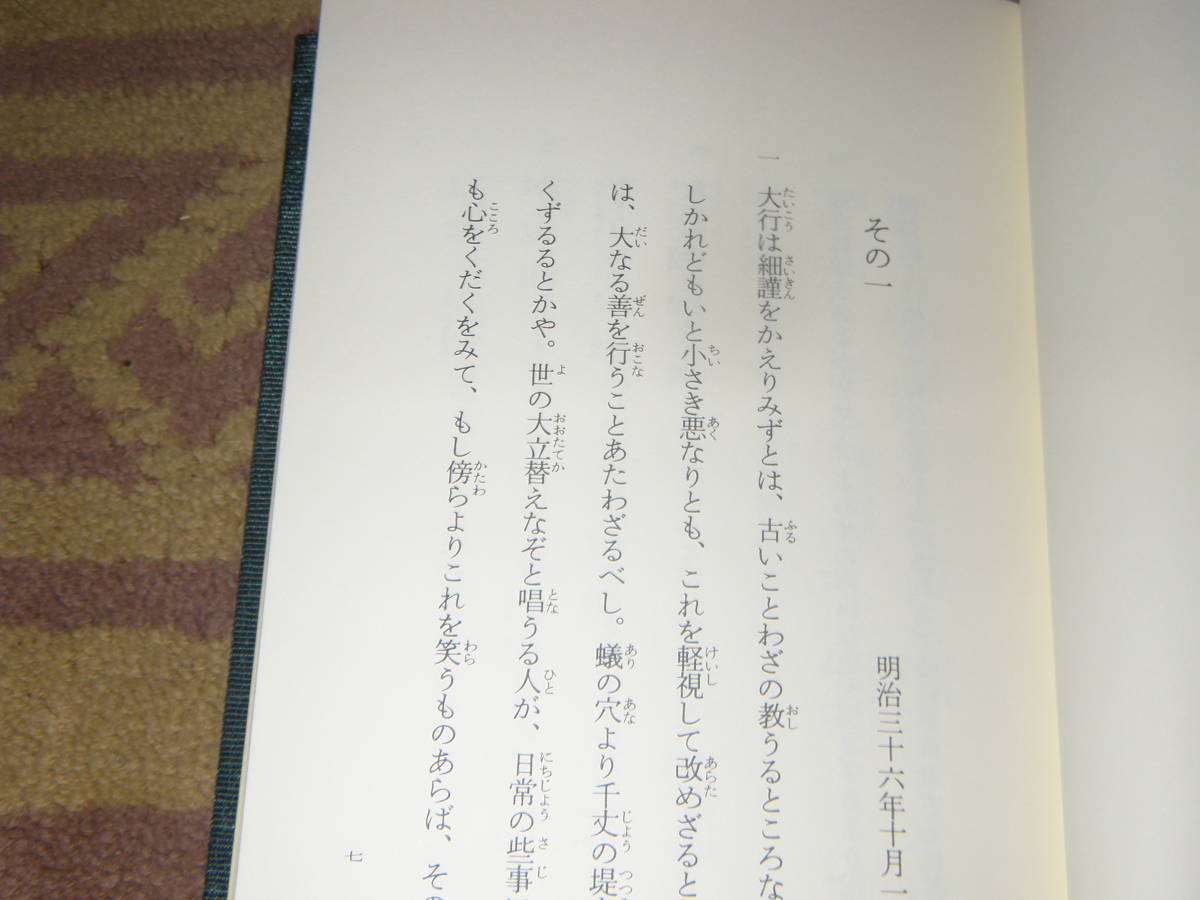 その一
明治三十六年十月一
一 大行は細謹をかえりみずとは、古いことわざの教うるところな
しかれどもいと小さき悪なりとも、これを軽視して改めざると
は、大なる善を行うことあたわざるべし。蟻の穴より千丈の堤
くずるるとかや。世の大立替えなぞと唱うる人が、日常の些事
も心をくだくをみて、もし傍らよりこれを笑うものあらば、その
七